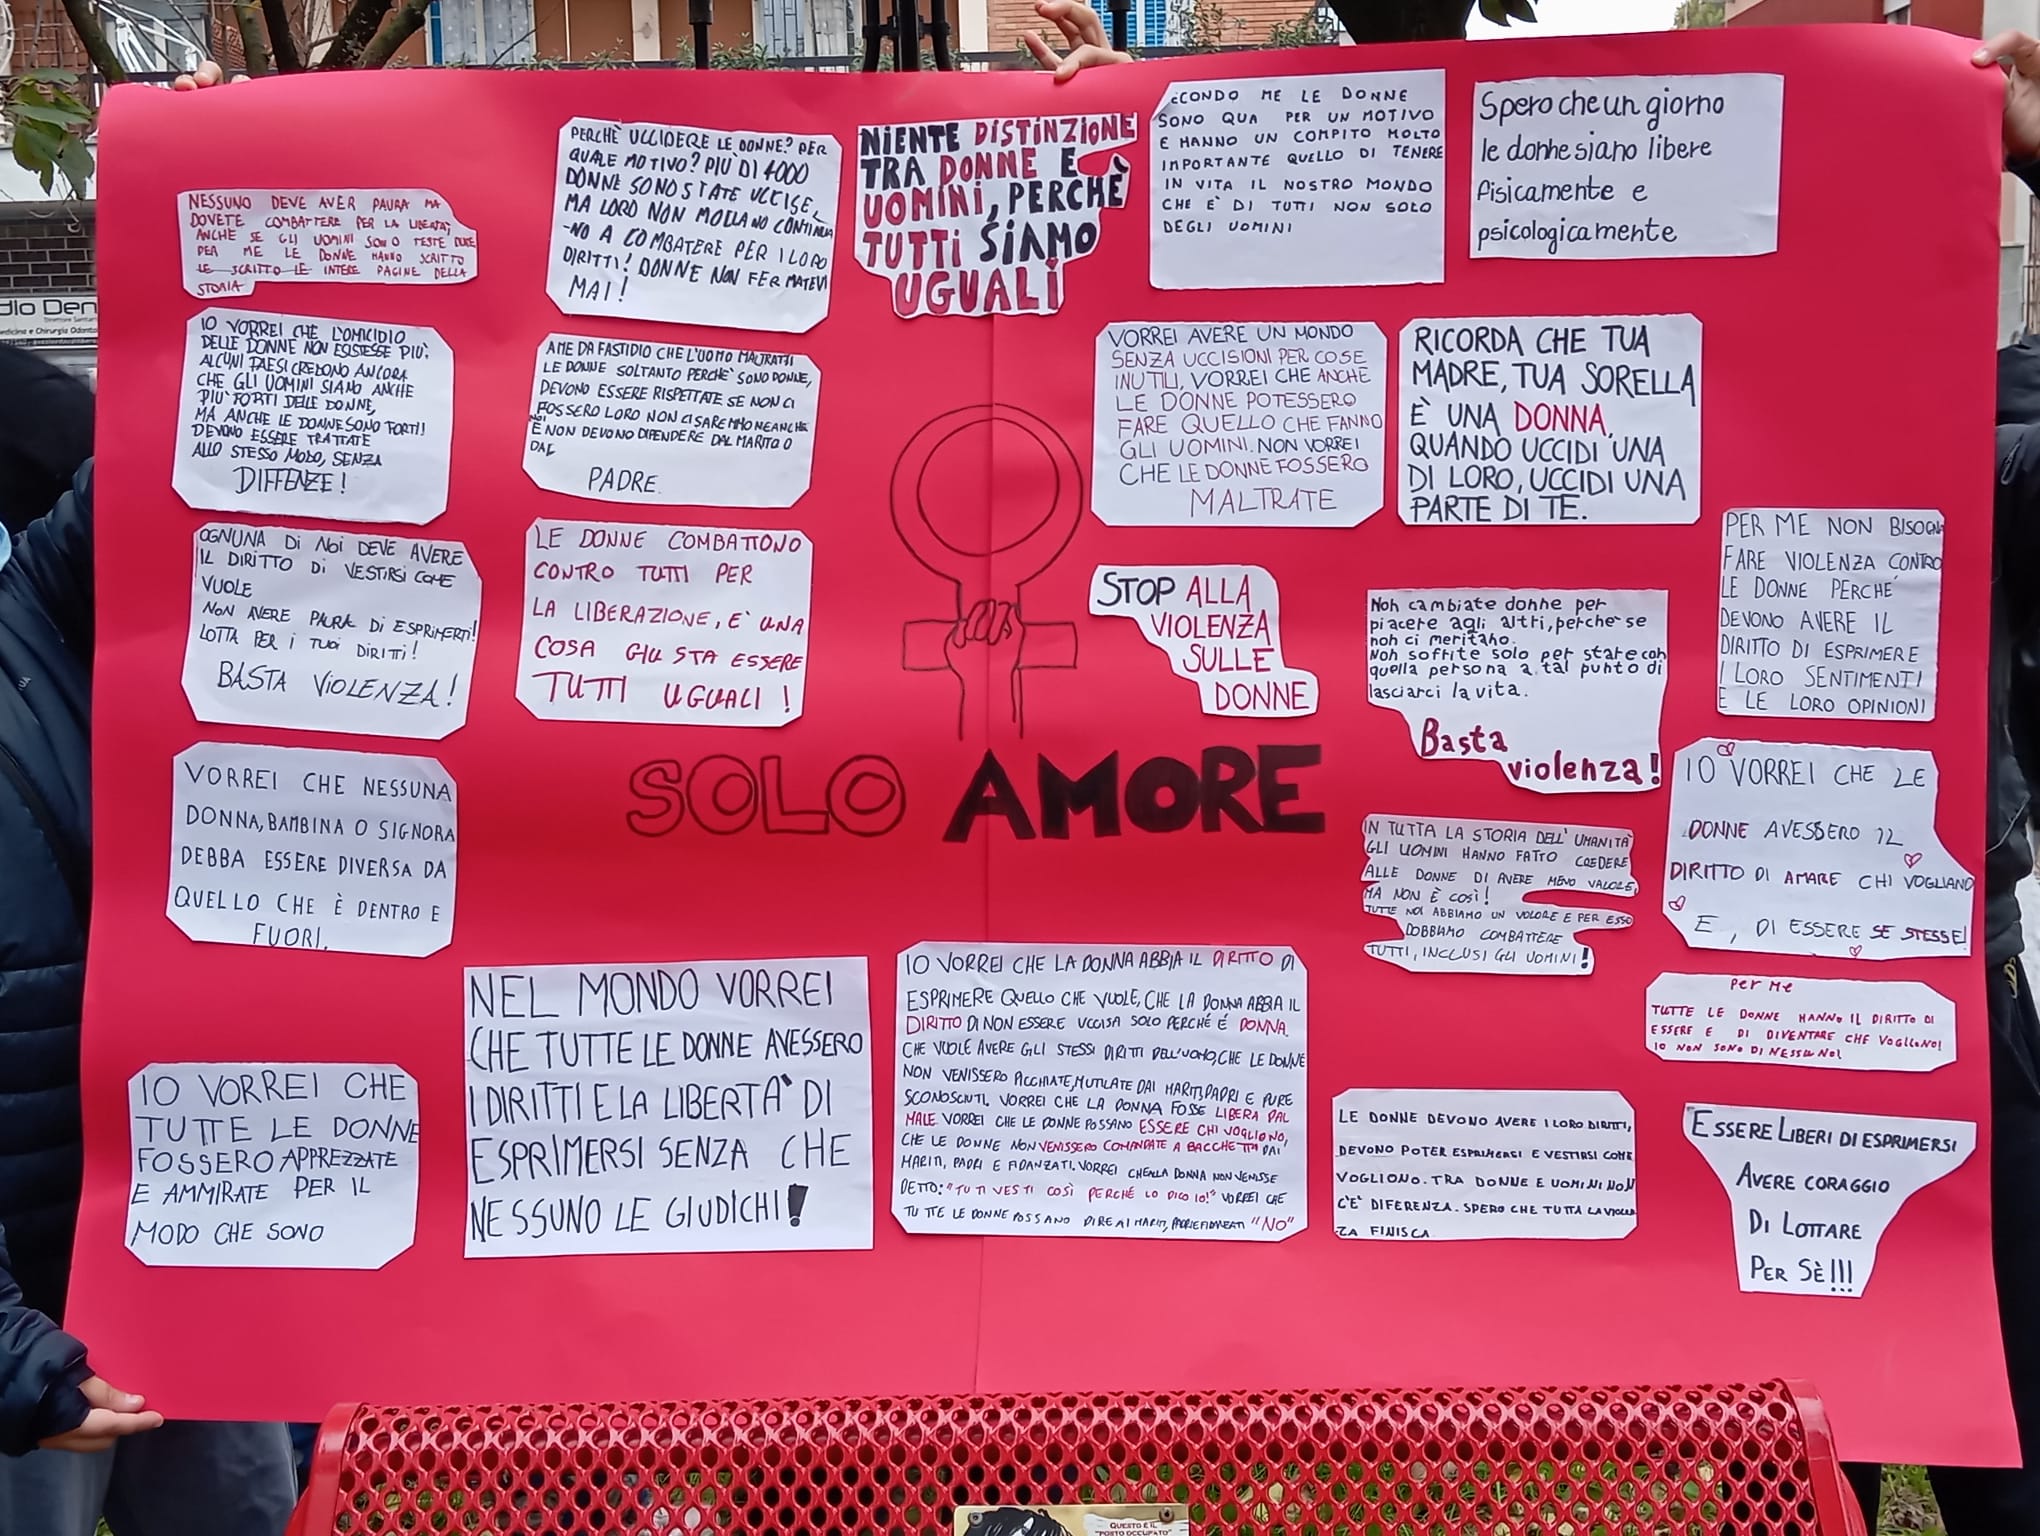 NESSUNO DEVE AVER PAURA MA
DOVETE COMBATTERE PER LA LIBERTÀ,
ANCHE SE GLI UOMINI SONO TESTE DURE
PER ME LE DONNE HANNO SCRITTO
LE SCRITTO LE INTERE PAGINE DELLA
STORIA
PERCHÈ UCCIDERE LE DONNE? PER
QUALE MOTIVO? PIÙ DI 4000
DONNE SONO STATE UCCISE,
MA LORO NON MOLLANO CONTINUA
-NO A COMBATERE PER I LORO
DIRITTI! DONNE NON FERMATEVI
MAI!
NIENTE DISTINZIONE
TRA DONNE E
UOMINI, PERCHÈ
TUTTI SIAMO
UGUALI
ECONDO ME LE DONNE
SONO QUA PER UN MOTIVO
E HANNO UN COMPITO MOLTO
IMPORTANTE QUELLO DI TENERE
IN VITA IL NOSTRO MONDO
CHE È DI TUTTI NON SOLO
DEGLI UOMINI
Spero che un giorno
le donne siano libere
fisicamente e
psicologicamente
IO VORREI CHE L'OMICIDIO
DELLE DONNE NON ESISTESSE PIÙ,
ALCUNI PAESI CREDONO ANCORA
CHE GLI UOMINI SIANO ANCHE
PIÙ FORTI DELLE DONNE,
MA ANCHE LE DONNE SONO FORTI!
DEVONO ESSERE TRATTATE
ALLO STESSO MODO, SENZA
DIFFENZE!
A ME DA FASTIDIO CHE L'UOMO MALTRATTI
LE DONNE SOLTANTO PERCHÈ SONO DONNE,
DEVONO ESSERE RISPETTATE SE NON CI
FOSSERO LORO NON CI SAREMMO NEANCHE
NOI
E NON DEVONO DIPENDERE DAL MARITO O
DAL
PADRE.
VORREI AVERE UN MONDO
SENZA UCCISIONI PER COSE
INUTILI, VORREI CHE ANCHE
LE DONNE POTESSERO
FARE QUELLO CHE FANNO
GLI UOMINI. NON VORREI
CHE LE DONNE FOSSERO
MALTRATE
RICORDA CHE TUA
MADRE, TUA SORELLA
È UNA DONNA,
QUANDO UCCIDI UNA
DI LORO, UCCIDI UNA
PARTE DI TE.
OGNUNA DI NOI DEVE AVERE
IL DIRITTO DI VESTIRSI COME
VUOLE
NON AVERE PAURA DI ESPRIMERTI!
LOTTA PER I TUOI DIRITTI!
BASTA VIOLENZA!
LE DONNE COMBATTONO
CONTRO TUTTI PER
LA LIBERAZIONE, E' UNA
COSA GIUSTA ESSERE
TUTTI UGUALI!
STOP ALLA
VIOLENZA
SULLE
DONNE
Non cambiate donne per
piacere agli altri, perche se
non ci meritano.
Non soffrite solo per stare con
quella persona a tal punto di
lasciarci la vita.
Basta
violenza!
PER ME NON BISOGNA
FARE VIOLENZA CONTRO
LE DONNE PERCHÉ
DEVONO AVERE IL
DIRITTO DI ESPRIMERE
I LORO SENTIMENTI
E LE LORO OPINIONI
SOLO AMORE
VORREI CHE NESSUNA
DONNA, BAMBINA O SIGNORA
DEBBA ESSERE DIVERSA DA
QUELLO CHE È DENTRO E
FUORI.
IN TUTTA LA STORIA DELL'UMANITÀ
GLI UOMINI HANNO FATTO CREDERE
ALLE DONNE DI AVERE MENO VALORE,
MA NON È COSÌ!
TUTTE NOI ABBIAMO UN VOLORE E PER ESSO
DOBBIAMO COMBATTERE
TUTTI, INCLUSI GLI UOMINI!
IO VORREI CHE LE
DONNE AVESSERO IL
DIRITTO DI AMARE CHI VOGLIANO
E, DI ESSERE SE STESSE!
Per Me
TUTTE LE DONNE HANNO IL DIRITTO DI
ESSERE E DI DIVENTARE CHE VOGLIONO!
IO NON SONO DI NESSUNO!
IO VORREI CHE
TUTTE LE DONNE
FOSSERO APPREZZATE
E AMMIRATE PER IL
MODO CHE SONO
NEL MONDO VORREI
CHE TUTTE LE DONNE AVESSERO
I DIRITTI E LA LIBERTA' DI
ESPRIMERSI SENZA CHE
NESSUNO LE GIUDICHI!
IO VORREI CHE LA DONNA ABBIA IL DIRITTO DI
ESPRIMERE QUELLO CHE VUOLE, CHE LA DONNA ABBIA IL
DIRITTO DI NON ESSERE UCCISA SOLO PERCHÉ É DONNA.
CHE VUOLE AVERE GLI STESSI DIRITTI DELL'UOMO, CHE LE DONNE
NON VENISSERO PICCHIATE, MUTILATE DAI MARITI, PADRI E PURE
SCONOSCIUTI. VORREI CHE LA DONNA FOSSE LIBERA DAL
MALE. VORREI CHE LE DONNE POSSANO ESSERE CHI VOGLIONO,
CHE LE DONNE NON VENISSERO COMANDATE A BACCHETTA DAI
MARITI, PADRI E FIDANZATI. VORREI CHE ALLA DONNA NON VENISSE
DETTO: "TU TI VESTI COSÌ PERCHÉ LO DICO IO!" VORREI CHE
TUTTE LE DONNE POSSANO DIRE AI MARITI, "NO"
LE DONNE DEVONO AVERE I LORO DIRITTI,
DEVONO POTER ESPRIMERSI E VESTIRSI COME
VOGLIONO. TRA DONNE E UOMINI NON
C'È DIFERENZA. SPERO CHE TUTTA LA VIOLEN
ZA FINISCA
ESSERE LIBERI DI ESPRIMERSI
AVERE CORAGGIO
DI LOTTARE
PER SÈ!!!
QUESTO È IL
"POSTO OCCUPATO"